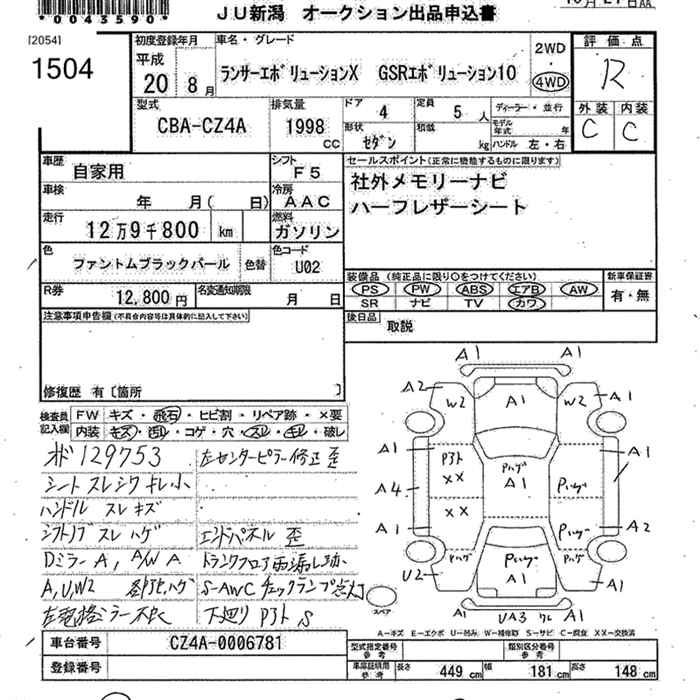 *0043590*
JU新潟 オークション出品申込書
[2054]
1504
初度登録年月 平成 20年 8月
車名・グレード
ランサーエボリューションX GSRエボリューション10
2WD
4WD
評価点
R
外装 内装
C C
型式
CBA-CZ4A
排気量
1998 CC
ドア 4
形状 セダン
定員 5 人
積載 kg
ディーラー・並行
モデル年式 年
ハンドル 左・右
車歴 自家用
シフト F5
車検 年 月( 日)
冷房 AAC
走行 12万9千800 km
燃料 ガソリン
色 ファントムブラックパール 色替
色コード U02
R券 12,800円
名変通知期限 月 日
セールスポイント(正常に機能するものに限ります)
社外メモリーナビ
ハーフレザーシート
装備品 (純正品に限り○をつけてください)
PS PW ABS エアB AW
SR ナビ TV カワ
新車保証書
有・無
後日品 取説
注意事項申告欄(不具合内容等は具体的に記入して下さい)
修復歴 有〔箇所 〕
検査員記入欄
FW キズ・飛石・ヒビ割・リペア跡・×要
内装 キズ・汚れ・コゲ・穴・スレ・キレ・破レ
129753
左センターピラー修正 歪
シート スレ シワ キレ 小
ハンドル スレ キズ
シフトノブ スレ ハゲ
エンドパネル 歪
Dミラー A, A/W A
トランクフロア雨漏レ
A,U,W2
S-AWC チェックランプ点灯
左電格ミラー不良
下廻り P3ト S
A1 A1
A2 W2 A1 W2 A1
A1 P3ト XX Pハゲ A1 Pハゲ A1
A4
A1 XX Pハゲ A2
U2 Pハゲ Pハゲ A1 Pハゲ A1
スペア
UA3 ワレ A1
A－キズ E－エクボ U－凹み W－補修跡 S－サビ C－腐食 XX－交換済
車台番号 CZ4A-0006781
登録番号
型式指定番号 参考
類別区分番号 参考
車庫証明用 参考
長さ 449 cm 幅 181 cm 高さ 148 cm